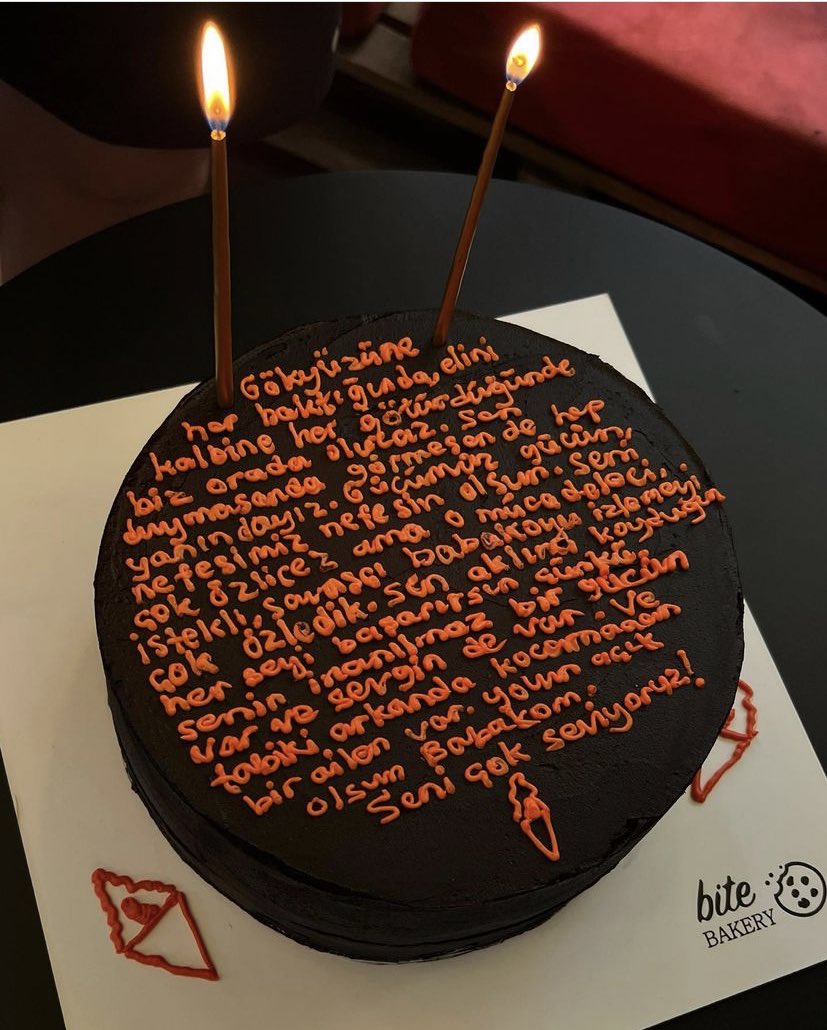 Gökyüzüne
her baktığında, elini
kalbine her götürdüğünde
biz orada olucaz. Sen
duymasanda görmesende hep
yanındayız. Gücümüz gücün,
nefesimiz nefesin olsun. Seni
çok özlicez ama o mücadeleci,
istekli, savaşçı babakoyu izlemeyi
çok özledik. Sen aklına koyduğun
her şeyi başarırsın çünkü
senin inanılmaz bir gücün
var ve sevgin de var. Ve
tabiki arkanda kocamaaan
bir ailen var. yolun açık
olsun Babakom.
Seni çok seviyoruz!
bite
BAKERY